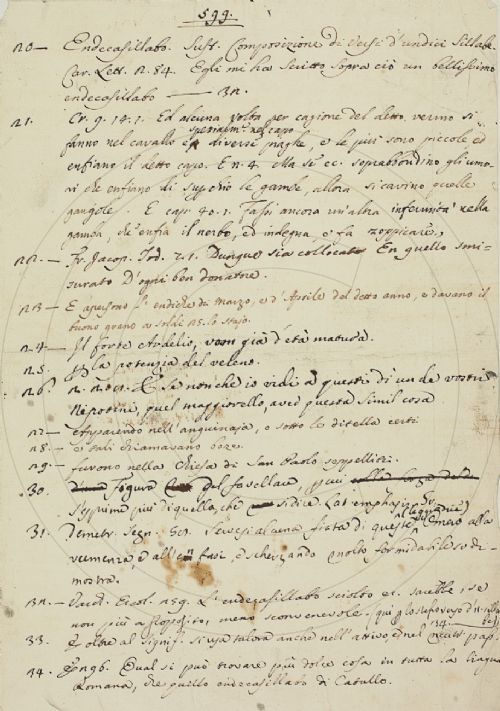 599.
20 — Endecasillabo. Sust. Composizione di versi d'undici sillabe.
Car. Lett. n. 54. Egli mi ha scritto sopra ciò un bellissimo
endecasillabo —
21. Cr. 9. 14. 1. Ed alcuna volta per cagione del detto vermo si
spezialm.e nel capo
fanno nel cavallo diverse piaghe, e le più sono piccole ed
enfiano il detto capo. E n. 4. Ma se ec. soprabbondino gli umo-
ri che enfiano di supchio le gambe, allora si cavino quelle
gangole. E cap. 40. 1. Fassi ancora un'altra infermità nella
gamba, ch'enfia il nerbo, ed indegna, e fa zoppicare,
22. — Fr. Jacop. Tod. Dunque sia collocato En quello smi-
surato D'ogni ben donatore.
23 — E apersono l'endiche di Marzo, e d'Aprile del detto anno, e davano il
buono grano a soldi 25. lo stajo.
24 — Il forte Ardelio, uom già d'età matura.
25. la potenzia del veleno.
26. E se non che io vidi a questi dì un de vostri
Nepotini, quel maggiorello, aver questa simil cosa
27 — Apparendo nell'anguinaja, o sotto le ditella certi
28. — e tali chiamavano boze.
29 — furono nella Chiesa di San Paolo seppelliti.
30. Figura del favellare, per cui
si esprime più di quello, che si dice. Lat. emphasis. Gr.
31. Demetr. Segn. 50. Servesi alcuna fiata di queste (leggiadrie) Omero alla
veemenza, e all'enfasi, e scherzando molto formidabile si di-
mostra.
32. — L'endecasillabo sciolto ec. sarebbe, se
non più a proposito, meno sconvenevole.
33. E oltre al signif. si usa talora anche nell'attivo, e nel neutr. pass.
34. Qual si può trovare più dolce cosa in tutta la lingua
Romana, che quello endecasillabo di Catullo.